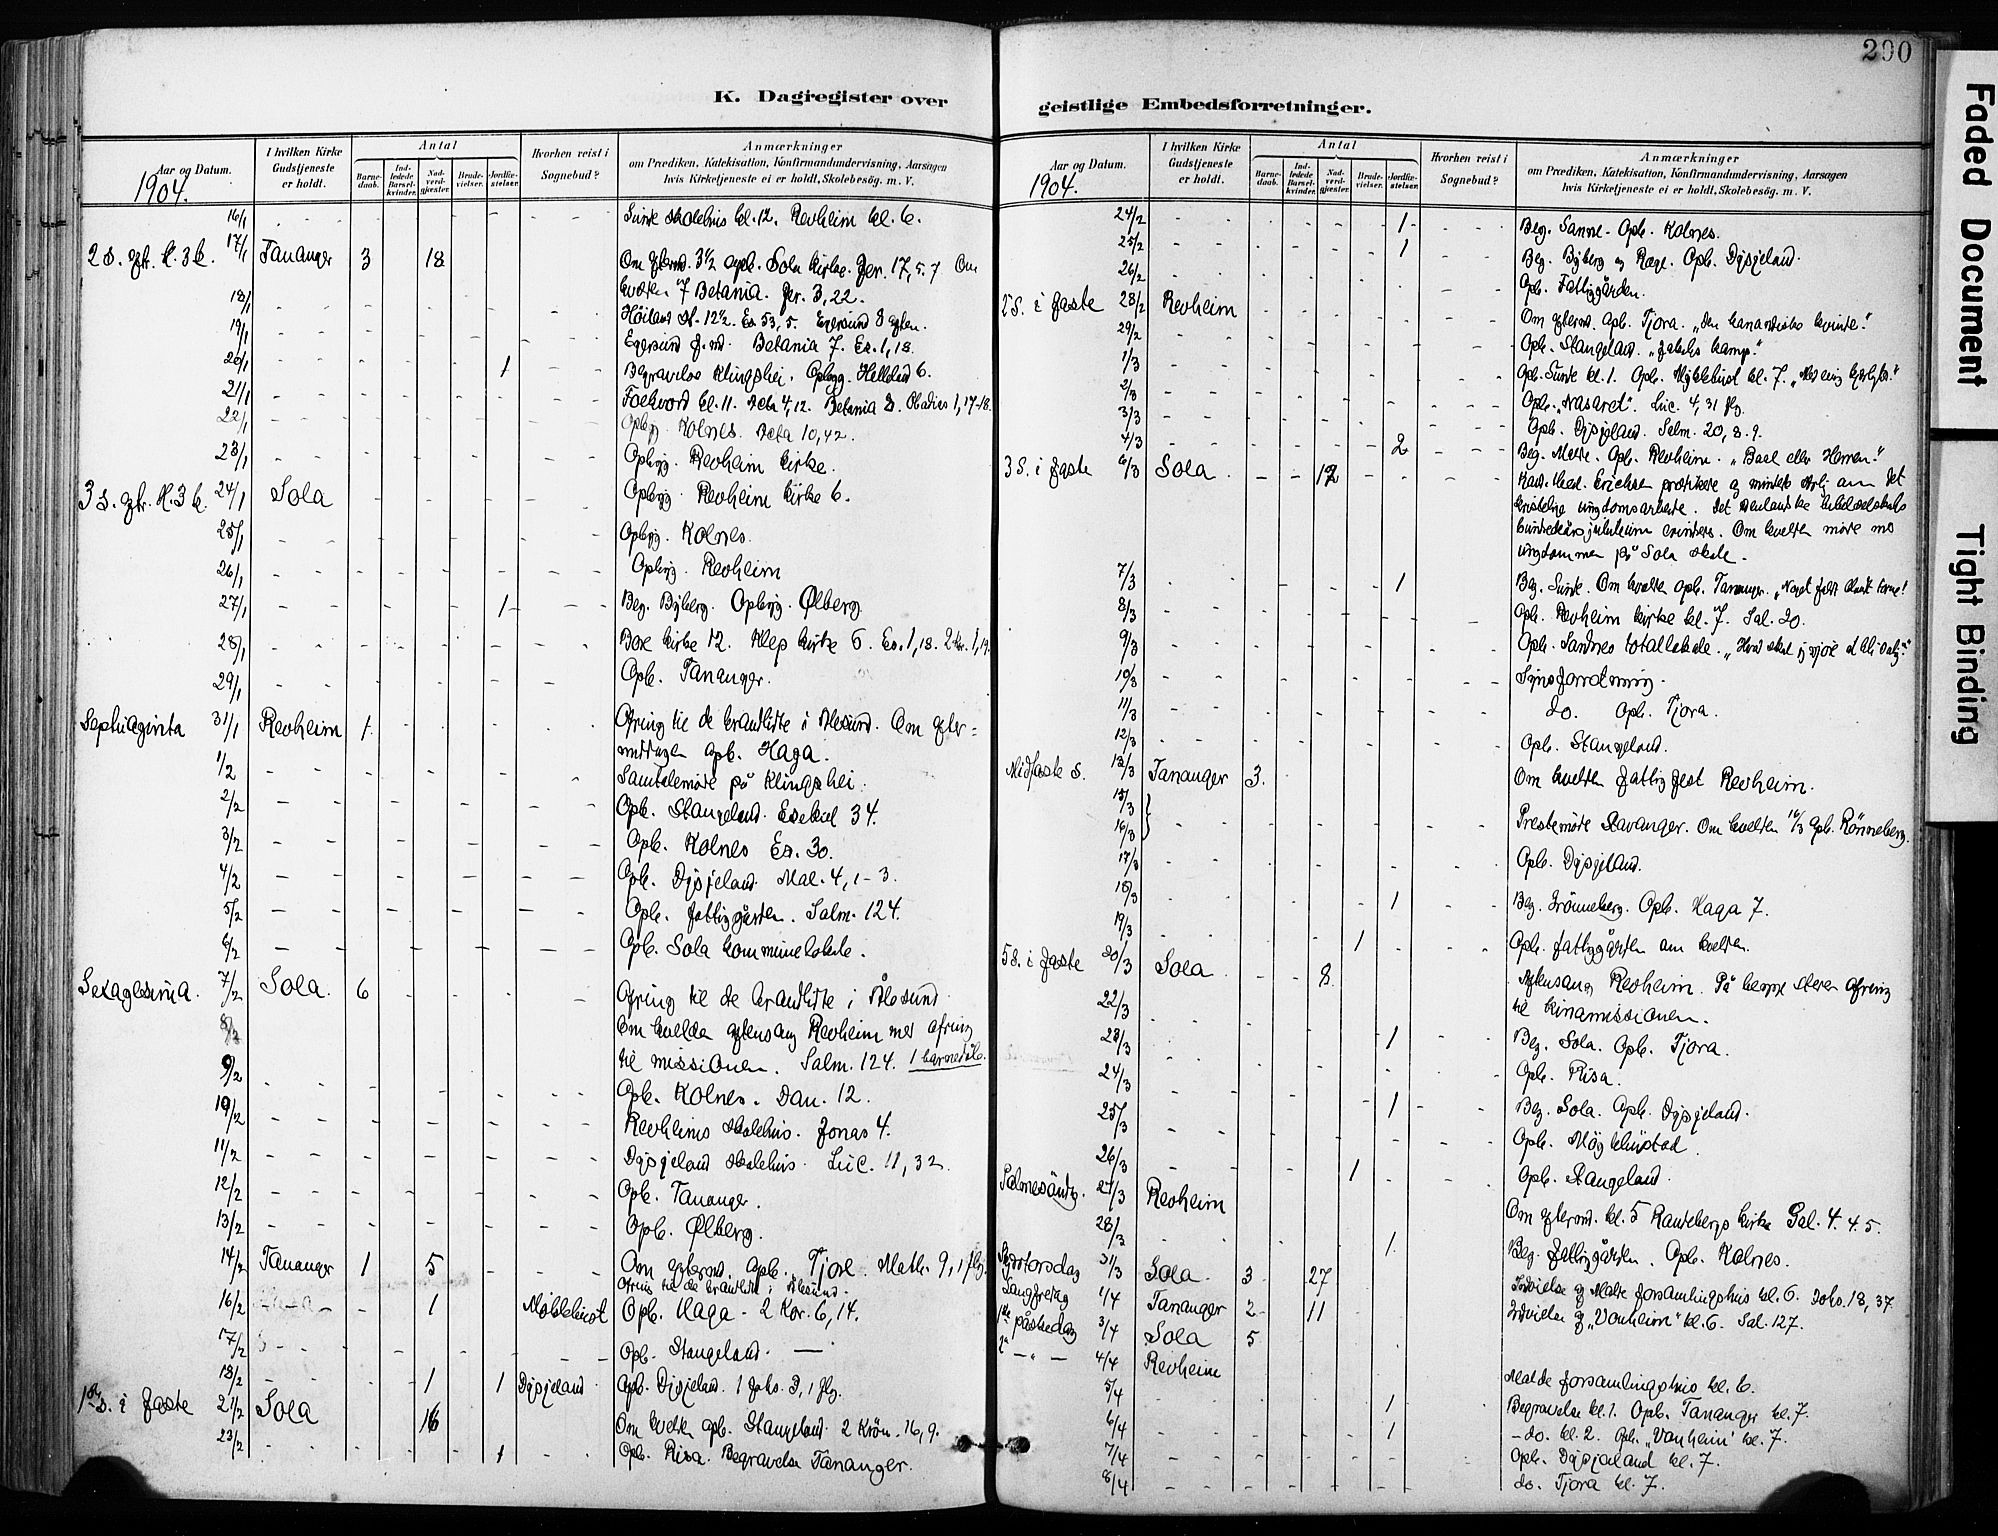 290
K. Dagregister over
geistlige Embedsforretninger.
Aar og Datum.
I hvilken Kirke Gudstjeneste er holdt.
Antal
Barne-daab.
Ind-ledede Barsel-kvinder.
Nad-verd-gjester.
Brude-vielser.
Jordfæ-stelser.
Hvorhen reist i Sognebud?
Anmærkninger
om Prædiken, Katekisation, Konfirmandundervisning, Aarsagen
hvis Kirketjeneste ei er holdt, Skolebesøg. m. V.
1904.
16/1 Sunde skolehus kl. 12. Revheim kl. 6.
17/1 Tananger 3 18 Om efterm. 3 1/2 opb. Sola kirke. Jer. 17, 5. 7 Om
kvelden 7 Betania. Jer. 3, 22.
18/1
19/1 Betania 7. Es. 1, 18.
20/1 1 Begravelse Klingshei. Opbyg. 6.
21/1 kl. 11. Acta 4, 12. Betania 8. Obadias 1, 17-18.
22/1 Opbyg. Kolnes. Acta 10, 42.
23/1 Opbyg. Revheim kirke.
24/1 Sola Opbyg. Revheim kirke 6.
25/1 Opbyg. Kolnes.
26/1 Opbyg. Revheim
27/1 1 Beg. Byberg. Opbyg. Ølberg.
28/1 kirke 12. Klep kirke 6. Es. 1, 18.
29/1 Opb. Tananger.
Septuaginta 31/1 Revheim 1 Ofring til de brandlidte i Ålesund. Om efter=
middagen opb. Haga.
1/2 Samtalemøde på Klingshei.
2/2 Opb. Stangeland. Esekiel 34.
3/2 Opb. Kolnes Es. 30.
4/2 Opb. Dysjeland. Mal. 4, 1-3.
5/2 Opb. fattiggården. Salm. 124.
6/2 Opb. Sola kommunelokale.
Sexagesima. 7/2 Sola. 6 Ofring til de brandlidte i Ålesund.
8/2 Om kvelden aftensang Revheim med ofring
til missionen. Salm. 124. 1 barnedåb.
9/2 Opb. Kolnes. Dan. 12.
10/2 Revheims skolehus. Jonas 4.
11/2 Dysjeland skolehus. Luc. 11, 32.
12/2 Opb. Tananger.
13/2 Opb. Ølberg.
14/2 Tananger 1 5 Om efterm. opb. Tjore. Math. 9, 1 flg.
Ofring til de brandlidte i Ålesund.
16/2 1 Møklebust Opb. Haga - 2 Kor. 6, 14.
17/2 Opb. Stangeland.
18/2 1 1 Dysjeland Opb. Dysjeland. 1 Joh. 3, 1 flg.
1ste S. i faste 21/2 Sola 16 Om kvelden opb. Stangeland. 2 Krøn. 16, 9.
23/2 1 Opb. Risa. Begravelse Tananger.
Aar og Datum.
I hvilken Kirke Gudstjeneste er holdt.
Antal
Barne-daab.
Ind-ledede Barsel-kvinder.
Nad-verd-gjester.
Brude-vielser.
Jordfæ-stelser.
Hvorhen reist i Sognebud?
Anmærkninger
om Prædiken, Katekisation, Konfirmandundervisning, Aarsagen
hvis Kirketjeneste ei er holdt, Skolebesøg. m. V.
1904.
24/2 1 Beg. Sanne. Opb. Kolnes.
25/2 1 Beg. Byberg og Rage. Opb. Dysjeland.
26/2 Opb. Fattiggården.
2 S. i faste 28/2 Revheim Om efterm. opb. Tjora. „Den kananæiske kvinde."
29/2 Opb. Stangeland. „Jakobs kamp."
1/3 Opb. Sunde kl. 1. Opb. Myklebust kl. 7.
2/3 Opb. „Nasaret". Luc. 4, 31 flg.
3/3 Opb. Dysjeland. Salm. 20, 8. 9.
4/3 2 Beg. Malde. Opb. Revheim. „Baal eller Herren."
3 S. i faste 6/3 Sola 12 Kand. theol. Erichsen prædikede og mindede om det
kristelige ungdomsarbeide. Det britiske bibelselskabs
hundredeårsjubilæum Om kvelden møde med
ungdommen på Sola skole.
7/3 1 Beg. Sunde. Om kvelden opb. Tananger.
8/3 Opb. Revheim kirke kl. 7. Sal. 20.
9/3 Opb. Sandnes totallokale. „Hvad skal jeg gjøre at bli salig?"
10/3 Synsforretning.
11/3 do. Opb. Tjora.
12/3 Opb. Stangeland.
Midfaste S. 13/3 Tananger 3. Om kvelden fattigfest Revheim.
15/3
16/3 Prestemøde Stavanger. Om kvelden 16/3 Opb. Rønneberg.
17/3 Opb. Dysjeland.
18/3 1 Beg. Grønneberg. Opb. Haga 7.
19/3 1 Opb. fattiggården om kvelden.
5 S. i faste 20/3 Sola 8 Aftensang Revheim. På begge steder ofring
til kinamissionen.
22/3
23/3 1 Beg. Sola. Opb. Tjora.
24/3 Opb. Risa.
25/3 1 Beg. Sola. Opb. Dysjeland.
Opb.
26/3 1 Opb. Stangeland.
Palmesøndg. 27/3 Revheim Om efterm. kl. 5 Randebergs kirke Gal. 4. 4. 5.
28/3 1 Beg. fattiggården. Opb. Kolnes.
Skjærtorsdag 31/3 Sola 3 27 Indvielse af Malde forsamlingshus kl. 6. Johs. 18, 37.
Langfredag 1/4 Tananger 2 11 Indvielse af „Vonheim" kl. 6. Sal. 127.
1ste påskedag 3/4 Sola 5
2n - " - 4/4 Revheim Malde forsamlingshus kl. 6.
5/4 1 Begravelse kl. 1. Opb. Tananger kl. 7.
6/4 1 - do. kl. 2. Opb. „Vonheim" kl. 7.
7/4 Opb. Dysjeland kl. 7.
8/4 do. Tjora kl. 7.
Faded Document
Tight Binding